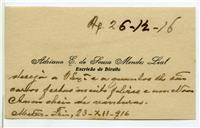 Rp 26-12-16
Adriano E. de Sousa Mendes Leal
Escrivão de Direito
deseja a V. Ex.ª e a quantos lhe são
caros festas muito felizes e um Novo
Anno cheio de venturas.
23-XII-916